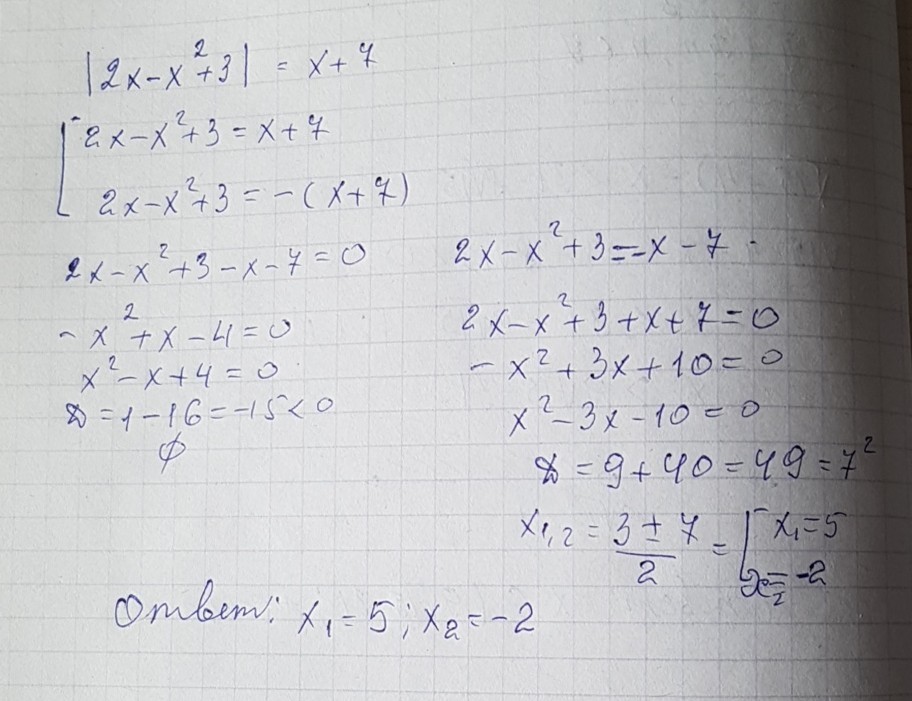 |2x-x²+3| = x+7
2x-x²+3=x+7
2x-x²+3=-(x+7)
2x-x²+3-x-7=0
-x²+x-4=0
x²-x+4=0
D=1-16=-15<0
∅
2x-x²+3=-x-7
2x-x²+3+x+7=0
-x²+3x+10=0
x²-3x-10=0
D=9+40=49=7²
x₁,₂ = (3±7)/2 = [x₁=5
x₂=-2
Ответ: x₁=5; x₂=-2